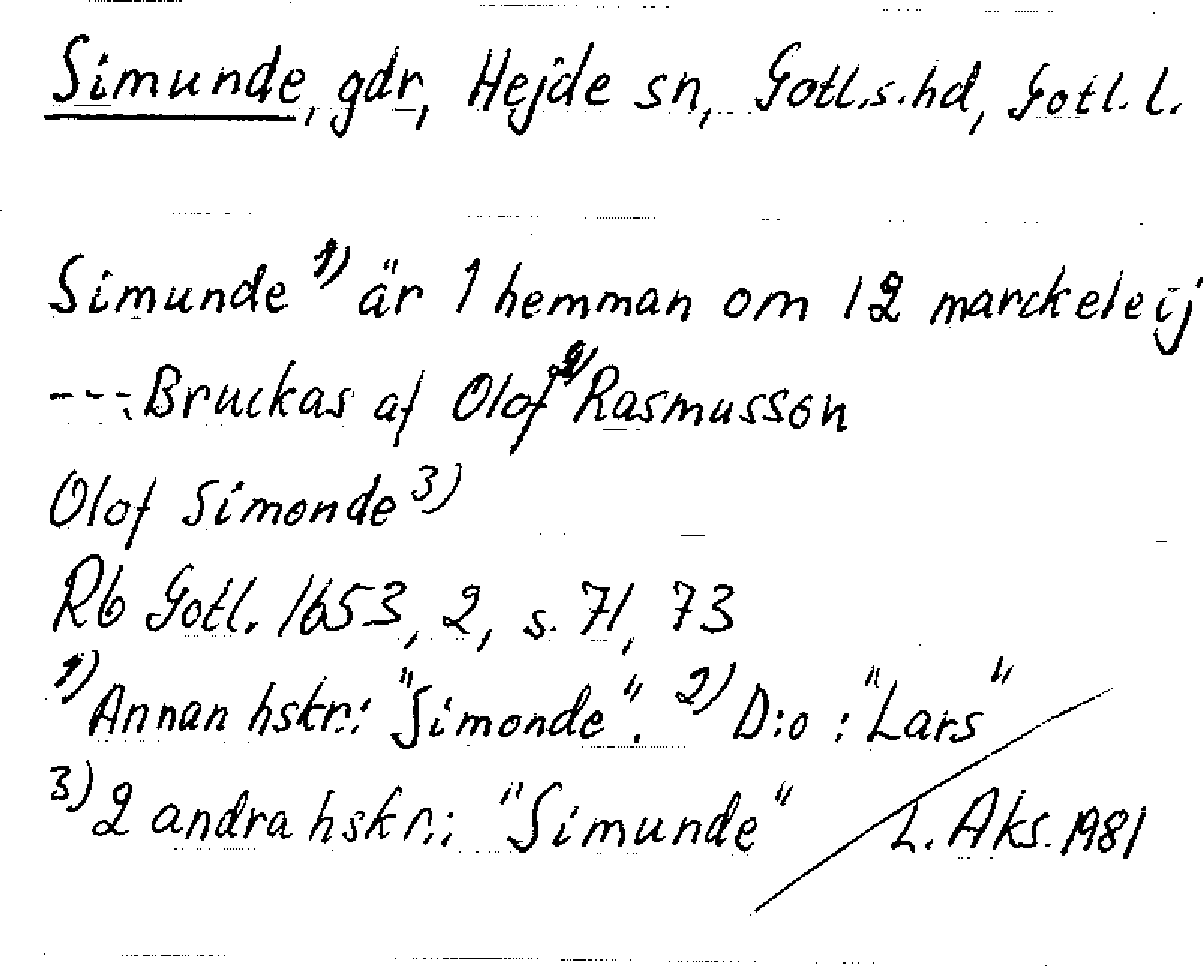 Simunde, gdr, Hejde sn, Gotl.s.hd, Gotl. l.
Simunde 1) är 1 hemman om 12 marckeleij
---. Bruckas af Olof 2) Rasmusson
Olof Simonde 3)
Rb Gotl. 1653, 2, s. 71, 73
1) Annan hskr.: "Simonde". 2) D:o : "Lars"
3) 2 andra hskr.: "Simunde" L. Aks. 1981